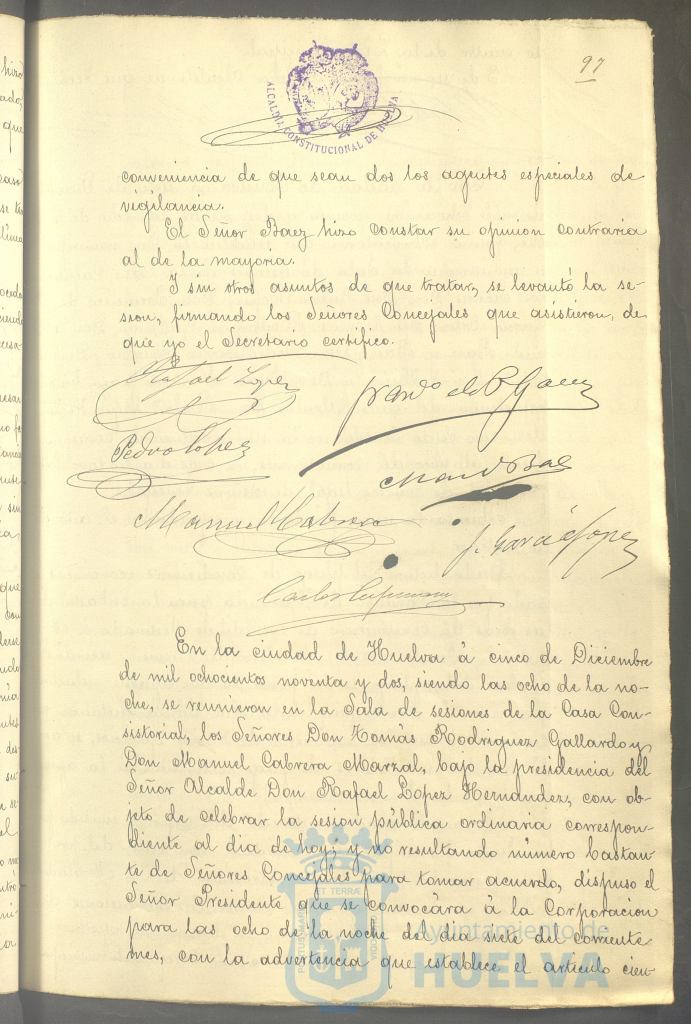 97
ALCALDIA CONSTITUCIONAL DE HUELVA
conveniencia de que sean dos los agentes especiales de
vigilancia.
El Señor Baez hizo constar su opinion contraria
al de la mayoria.
Y sin otros asuntos de que tratar, se levantó la se-
sion, firmando los Señores Concejales que asistieron, de
que yo el Secretario certifico.
Rafael Lopez
Pedro Lopez
Manuel Cabrera
J. García Lopez
Carlos
En la ciudad de Huelva á cinco de Diciembre
de mil ochocientos noventa y dos, siendo las ocho de la no-
che, se reunieron en la Sala de sesiones de la Casa Con-
sistorial, los Señores Don Tomás Rodriguez Gallardo y
Don Manuel Cabrera Marzal, bajo la presidencia del
Señor Alcalde Don Rafael López Hernandez, con ob-
jeto de celebrar la sesion pública ordinaria correspon-
diente al dia de hoy; y no resultando número bastan-
te de Señores Concejales para tomar acuerdo, dispuso el
Señor Presidente que se convocára á la Corporacion
para las ocho de la noche del dia siete del corriente
mes, con la advertencia que establece el articulo cien-
Ayuntamiento de
HUELVA